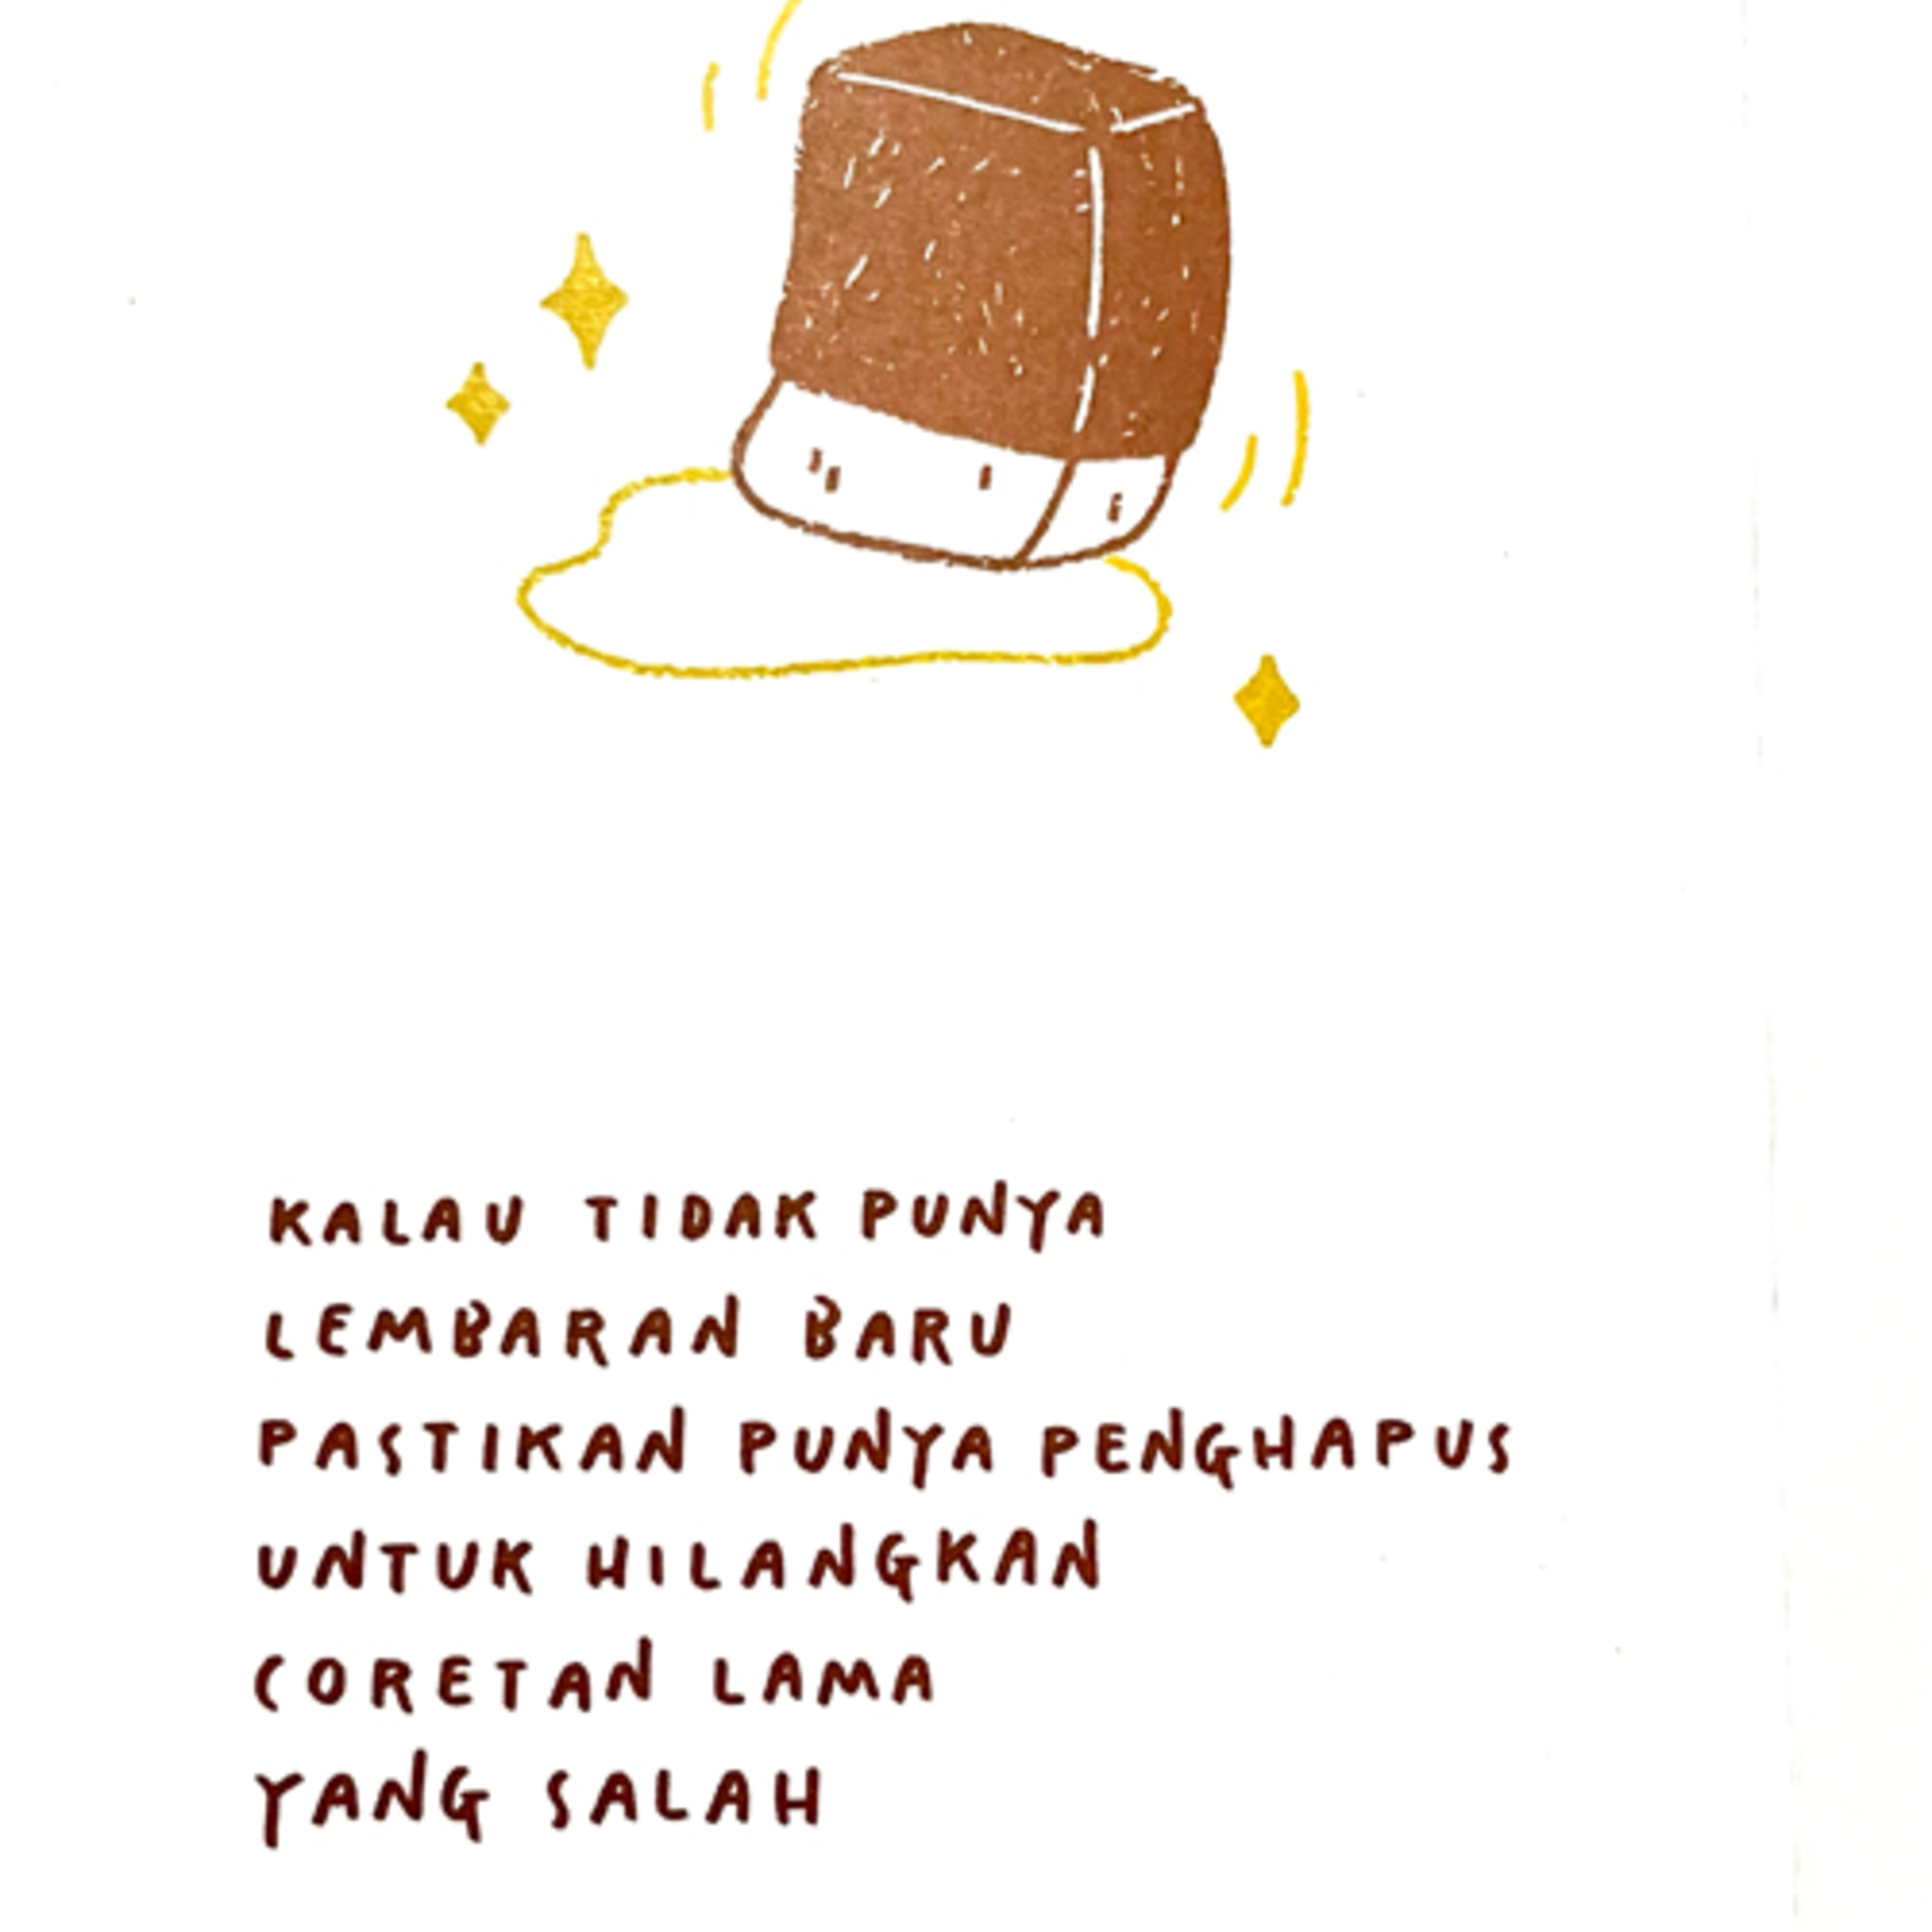 KALAU TIDAK PUNYA
LEMBARAN BARU
PASTIKAN PUNYA PENGHAPUS
UNTUK HILANGKAN
CORETAN LAMA
YANG SALAH